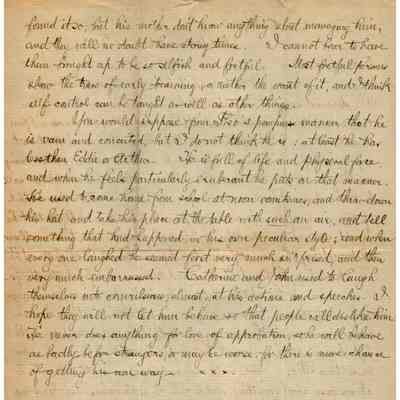 found it so, but his mother don't know anything about managing him,
and they will no doubt have stormy times. I cannot bear to have
them brought up to be so selfish and fretful. Most fretful persons
show the traces of early training, or rather the want of it, and I think
self control can be taught as well as other things.
You would suppose from pompous manner that he
is vain and conceited, but I do not think he is, at least he has
less than Eddie or Arthur. He is full of life and physical force
and when he feels particularly exuberant he puts on that manner.
He used to come home from school at noon sometimes, and throw down
his hat and take his place at the table with such an air, and tell
something that had happened, in his own peculiar style; and when
every one laughed he seemed first very much surprised, and then
very much embarrassed. Catharine and John used to laugh
themselves into convulsions, almost, at his actions and speeches. I
hope they will not let him behave so that people will dislike him.
He never does anything for love of approbation, so he will behave
as badly before strangers, or maybe worse, for there is more chance
of getting his own way — x x x